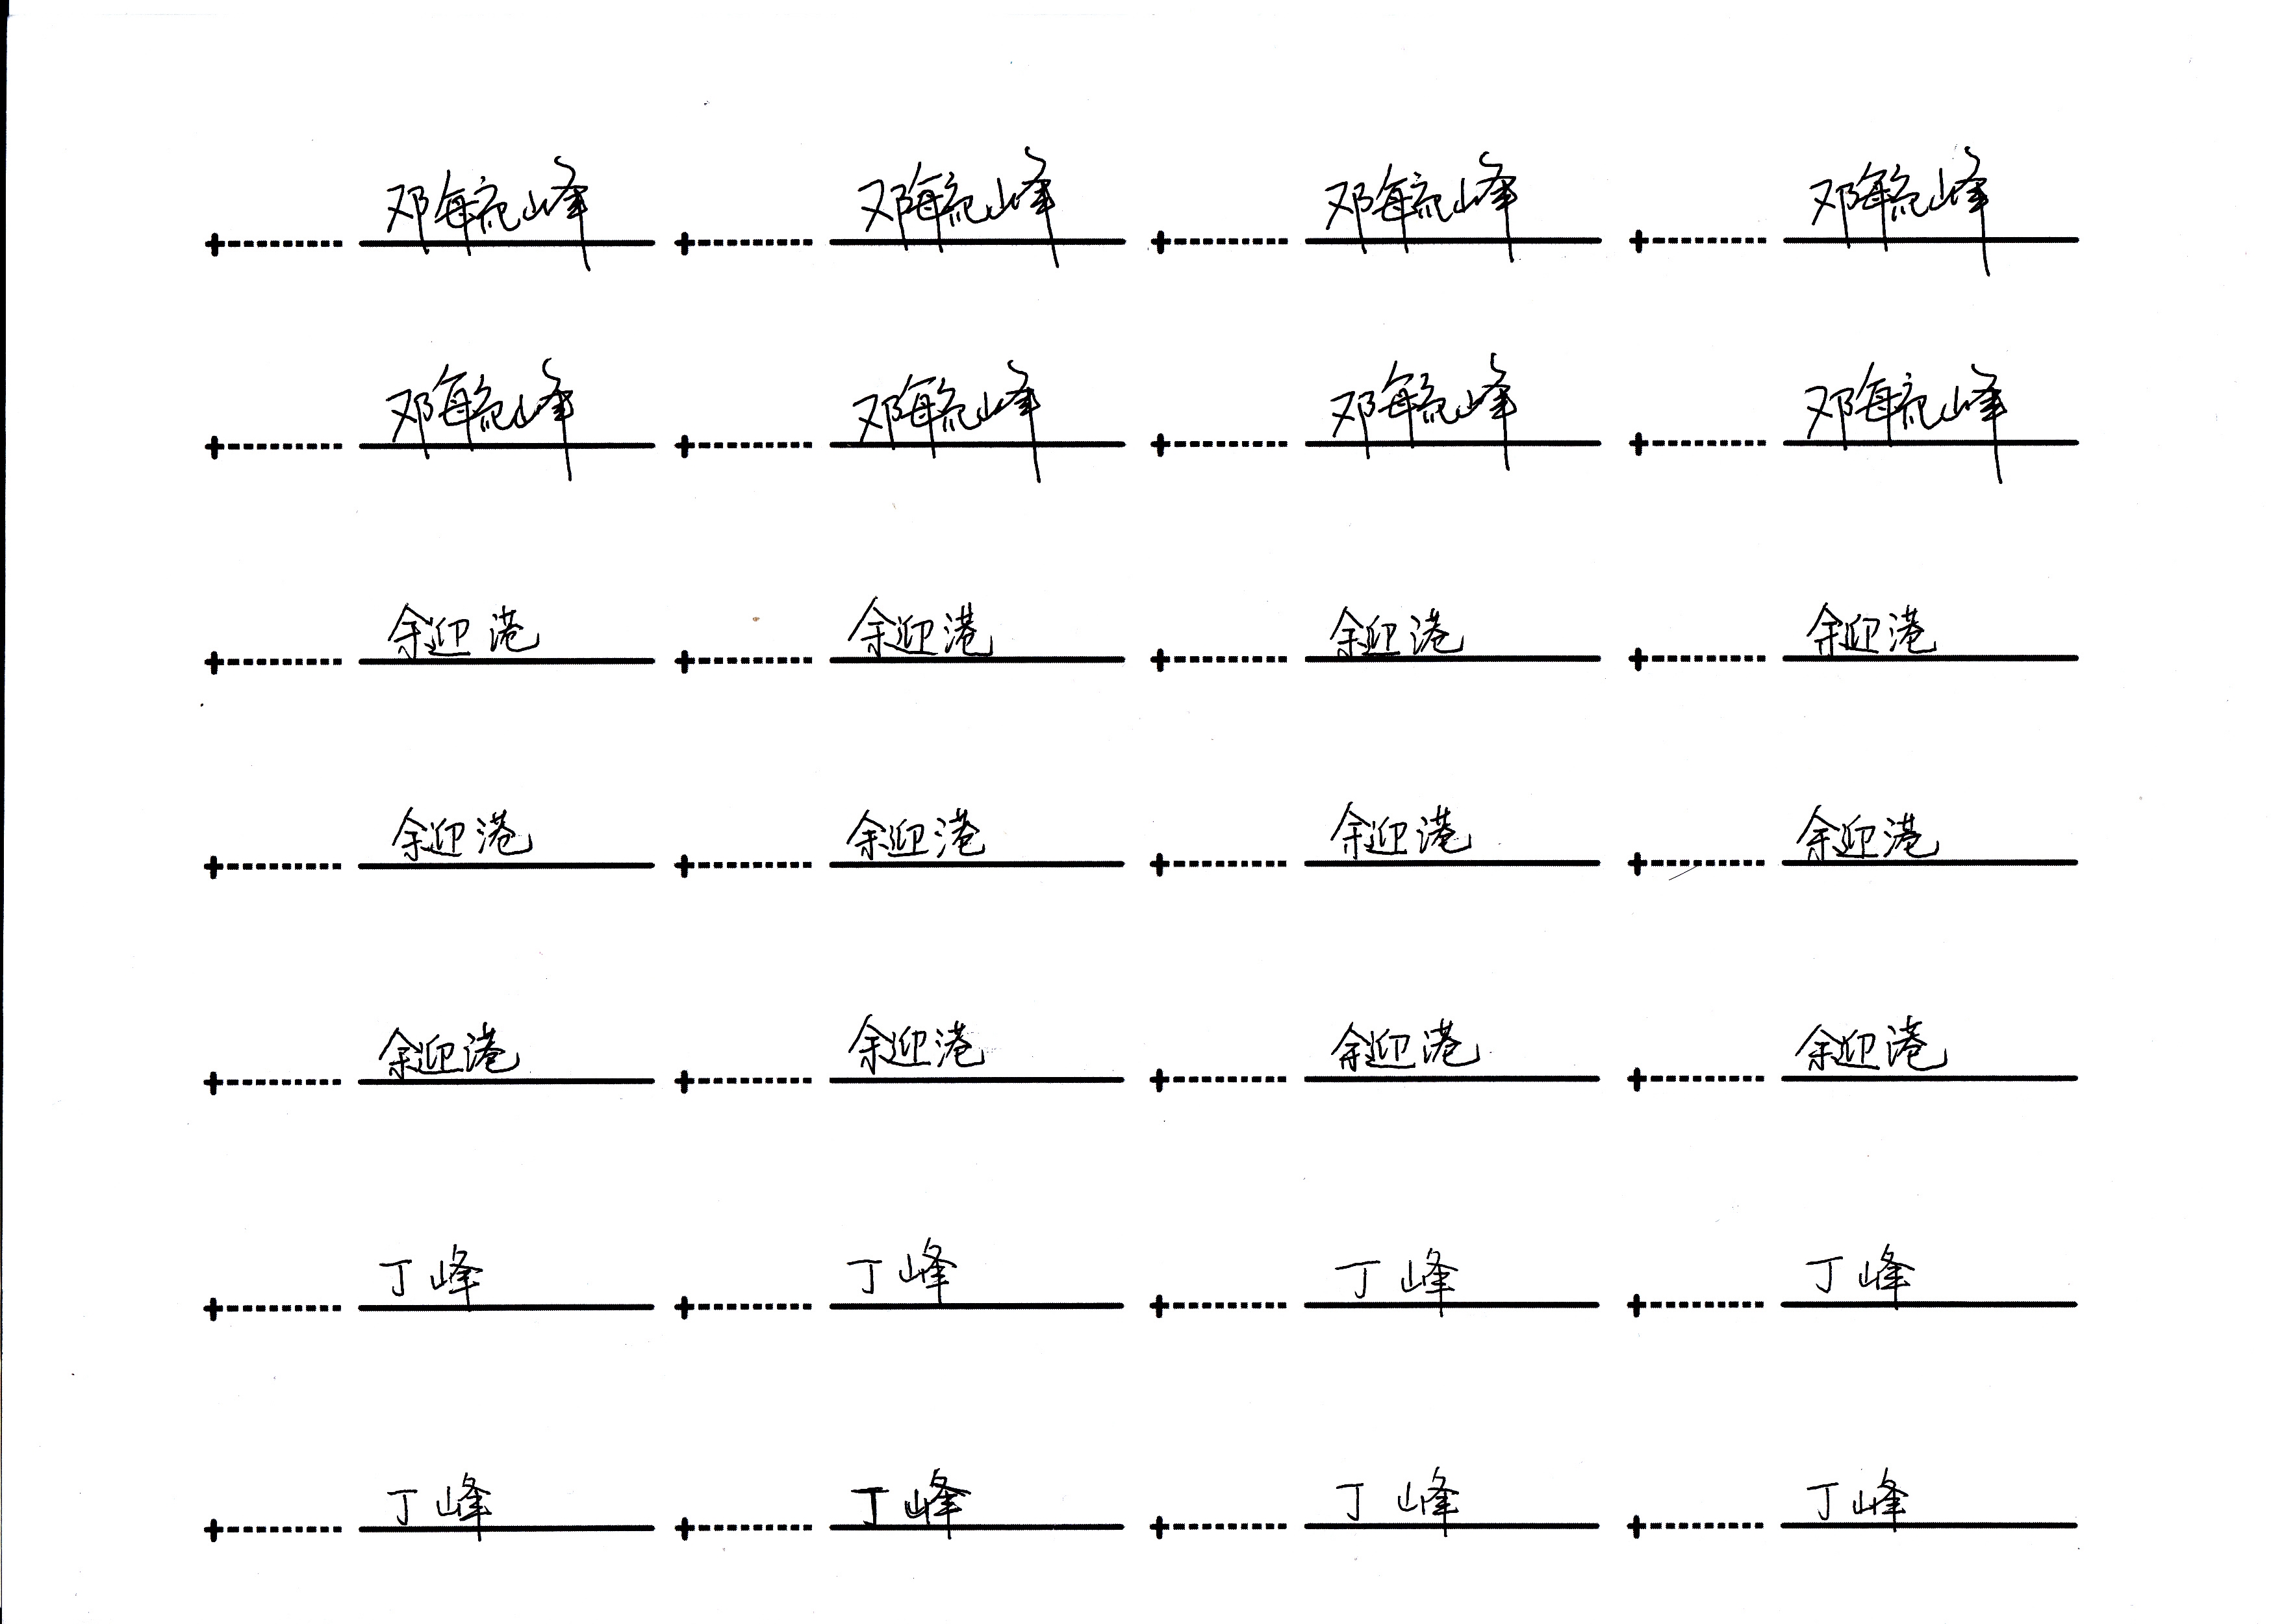 邓毓峰 邓毓峰 邓毓峰 邓毓峰
邓毓峰 邓毓峰 邓毓峰 邓毓峰
余迎港 余迎港 余迎港 余迎港
余迎港 余迎港 余迎港 余迎港
余迎港 余迎港 余迎港 余迎港
丁峰 丁峰 丁峰 丁峰
丁峰 丁峰 丁峰 丁峰